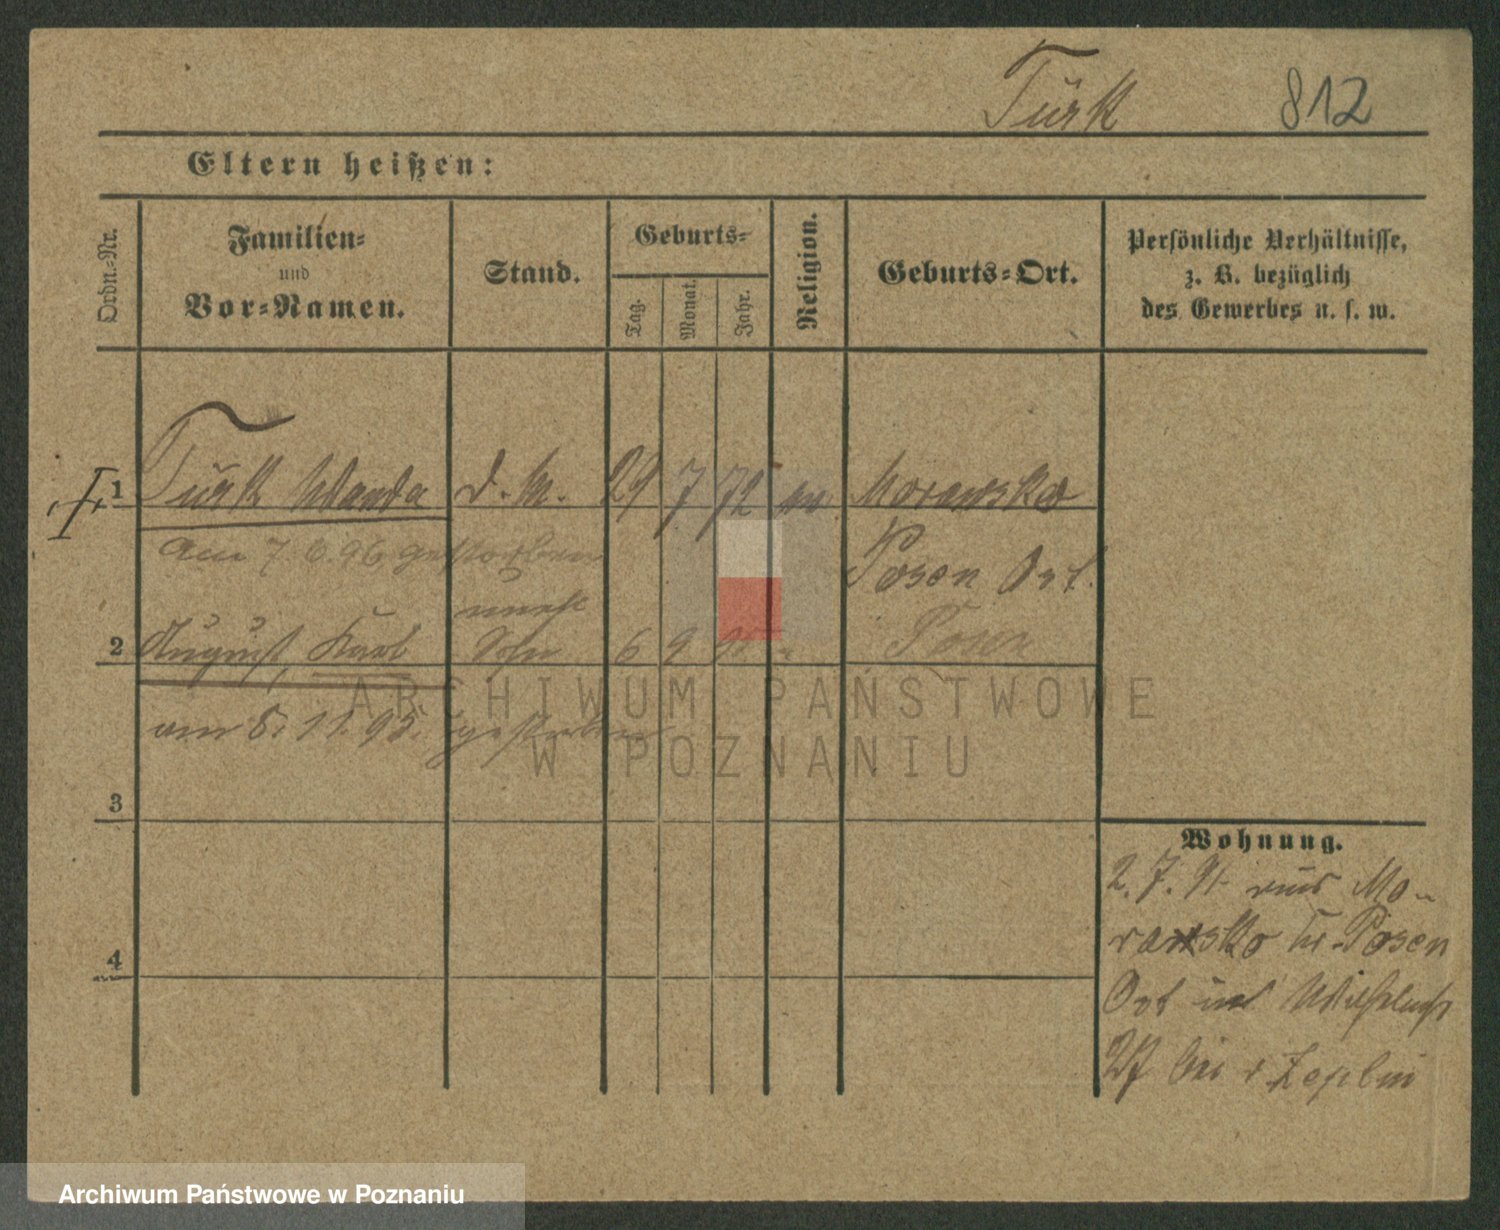 Türk 812
Eltern heißen:
Ordn.-Nr.
Familien-
und
Vor-Namen.
Stand.
Geburts-
Tag.
Monat.
Jahr.
Religion.
Geburts-Ort.
Persönliche Verhältnisse,
z. B. bezüglich
des Gewerbes u. s. w.
1 Türk Wanda d. M. 29 7 72 Morawsko
am 7. 6. 96 gestorben
Posen Ost.
unehl
2 August, Karl Sohn 6 9 Posen
am 5. 11. 95. gestorben
3
4
Wohnung.
2. 7. 91 aus Mo-
rawsko Kr. Posen
Ost
27 bei v. Zeplin
ARCHIWUM PAŃSTWOWE
W POZNANIU
Archiwum Państwowe w Poznaniu